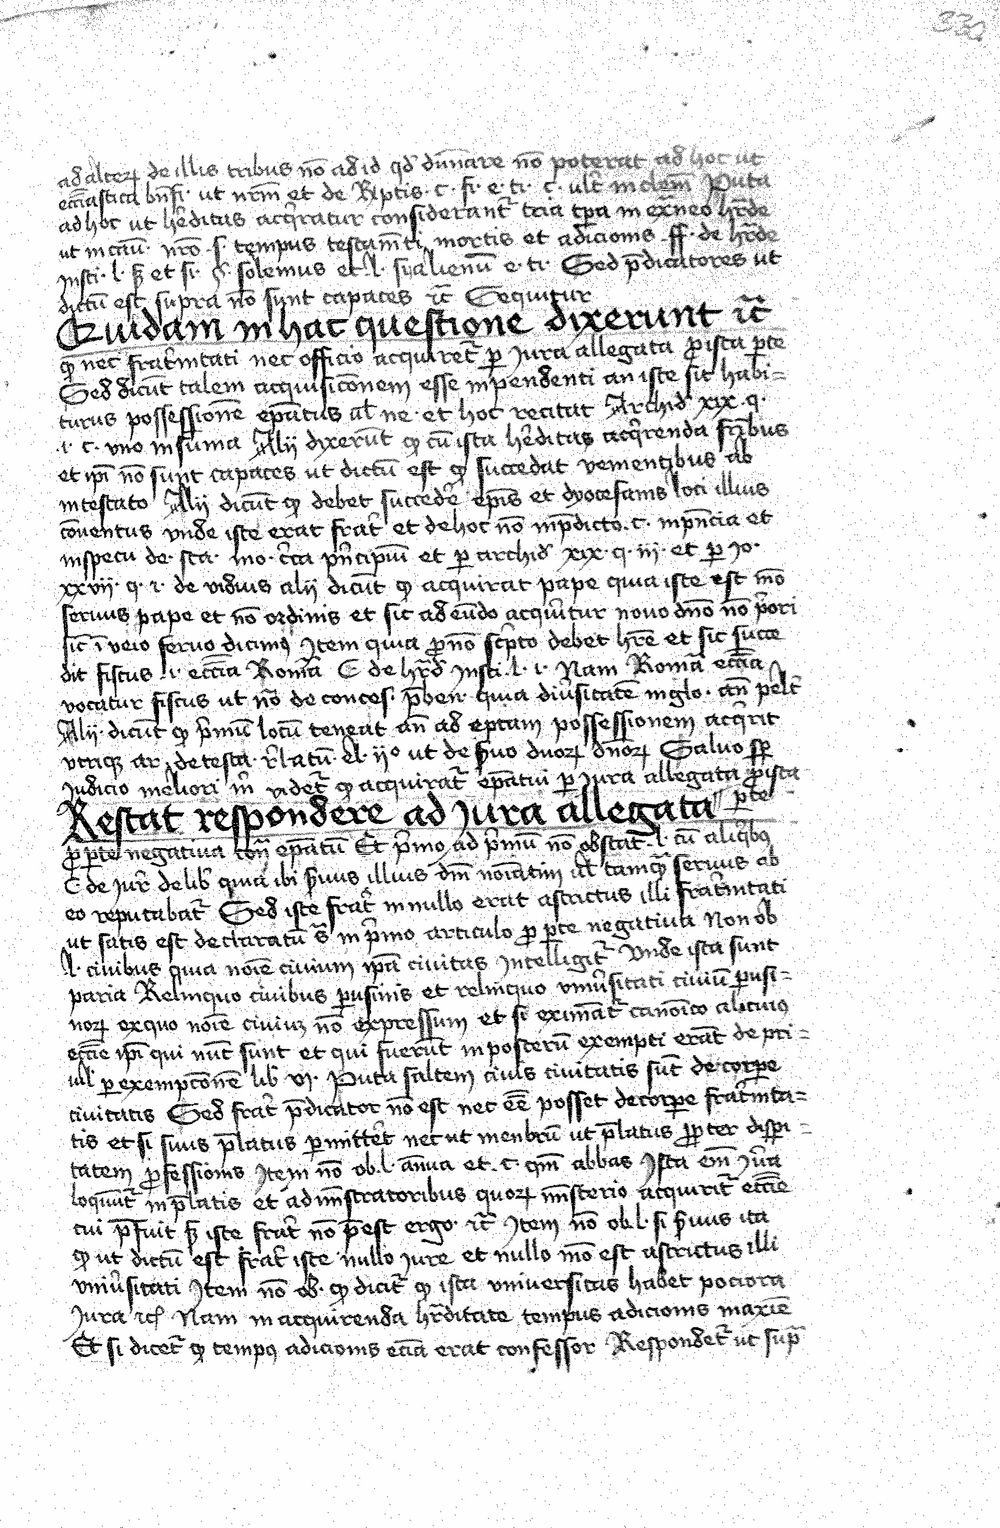 330
ad alterꝝ de illis tribus nō ad id qd̄ dūnare nō poterat ad hoc ut
ecc̄iastica bn̄fi· ut nr̄m et de Rp̄tis · c · fi · e · ti · c · ult̄ in clem̄ Puta
ad hoc ut hr̄editas acq̄ratur considerant̄ tria tp̄a in ex̄neo hr̄de
ut in cau· nr̄o · s̄· tempus testam̄ti mortis et adicionis ff · de hr̄de
insti · l · et si · solemus et · l · si alienū e · ti · Sed p̄dicatores ut
dictū est supra nō sunt capaces ꝛc̄ Sequitur
Quidam in hac questione dixerunt ꝛc̄
ꝙ nec frat̄nitati nec officio acquiret̄ ꝑ iura allegata ꝓ ista ꝑte
Sed dicūt talem acquisic̄onem esse in pendenti an iste sit habi=
turus possessionē ep̄atus al̄ ne · et hoc recitat Archid̄ xix · q ·
· i · c · vno in suma Alij dixerūt ꝙ cū ista hr̄editas acq̄renda fr̄ibus
et ip̄i nō sunt capaces ut dictū est ꝙ succedāt venientibus ab
intestato Alij dicūt ꝙ debet succedē ep̄us et dyocesanis loci illius
cōventus vnde iste erat frat̄ et de hoc nō in p̄dicto · c · in p̄ncia et
in specu de · sta · mo · c̄ca p̄ncipiū et ꝑ archid̄ xix · q · iij · et ꝑ Jo ·
xxvij · q · i · de viduis alij dicūt ꝙ acquirat pape quia iste est mō
servus pape et nō ordinis et sic adeūdo acquīitur novo dn̄o nō p̄ori
sic̄ ī vero servo dicimꝰ Item quia ꝓ nō sc̄pto debet hr̄e et sic succe
dit fiscus · i · ecc̄ia Romā C de hr̄d̄ Insti · l · i · Nam Romā ecc̄ia
vocatur fiscus ut nō de conces · p̄ben · quia diūsitatē in glo · an̄ pel̄t
Alij dicūt ꝙ p̄mū locū teneat an̄ adeptam possessionem acq̄rit
utriqꝫ ar · de testa · r̄latū · el · ijº ut de s̄vuo duoꝝ dn̄oꝝ Salvo sꝑ
iudicio meliori m̄ videt̄ ꝙ acquirat̄ ep̄atui ꝑ iura allegata ꝓ ista
ꝑte
Restat respondere ad iura allegata
ꝓ ꝑte negativa con̄ ep̄atū Et p̄mo ad p̄mū nō obstat̄ · l · cū aliq̄bꝰ
C de iur̄ delib̄ quia ibi s̄vuus illius dn̄i no͞iatim ul̄ tamq̄ servus ab
eo reputabat̄ Sed iste frat̄ in nullo erat astrictus illi frat̄nitati
ut satis est declaratū s̄ in p̄mo articulo ꝓ ꝑte negativa Non ob
l · civibus quia no͞ie civium ip̄a civitas intelligit̄ Vnde ista sunt
paria Relinquo civibus ꝑusinis et relinquo vniūsitati civiū ꝑusi=
noꝝ exquo no͞ie civiuꝫ nō expressum et si eximāt̄ cano͞ico alicuiꝰ
ecc̄ie ip̄i qui nūc sunt et qui fuerūt in posterū exempti erāt de p̄ci=
vil̄ ꝑ exempc̄onē lib̄ vj · Puta saltem civis civitatis sūt de corꝑe
civitatis Sed frat̄ p̄dicator nō est nec eē posset de corꝑe frat̄nita=
tis et si suus p̄latus ꝑmitteret̄ nec ut menbrū ut p̄latus ꝓpter disꝑi=
tatem ꝓfessionis Item nō ob · l · anua et · c · qm̄ abbas Ista em̄ iu͞ra
loqunt̄ in p̄latis et ad mīstratoribus quoꝝ mīsterio acquirit̄ ecc̄ie
cui p̄fuit s̄ iste frat̄ nō p̄est ergo · ꝛc̄ Item nō ob · l · si s̄vuus ita
ꝙ ut dictū est frat̄ iste nullo iure et nullo mō est astrictus illi
vniūsitati Item nō ob · ꝙ dicit̄ ꝙ ista universitas habet pociora
iura ꝛc̄ Nam in acquirenda hr̄ditate tempus adicionis maxiē
Et si dicet̄ ꝙ tempꝰ adicionis eciā erat confessor Respondet̄ ut sup̄